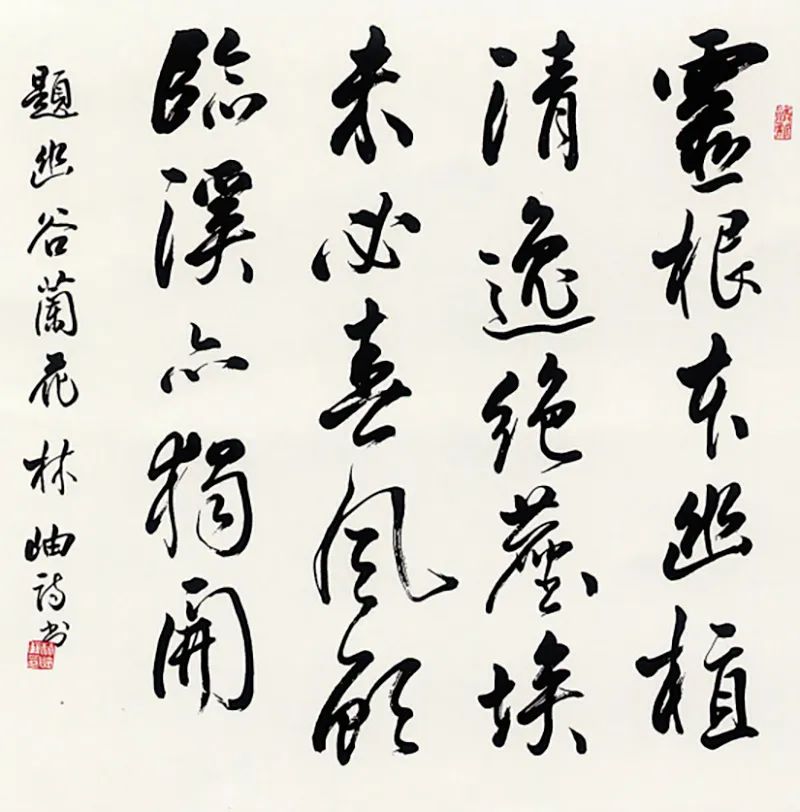 靈根本幽植
清逸絶塵埃
未必春風顧
臨溪亦獨開
題幽谷蘭花林岫詩书